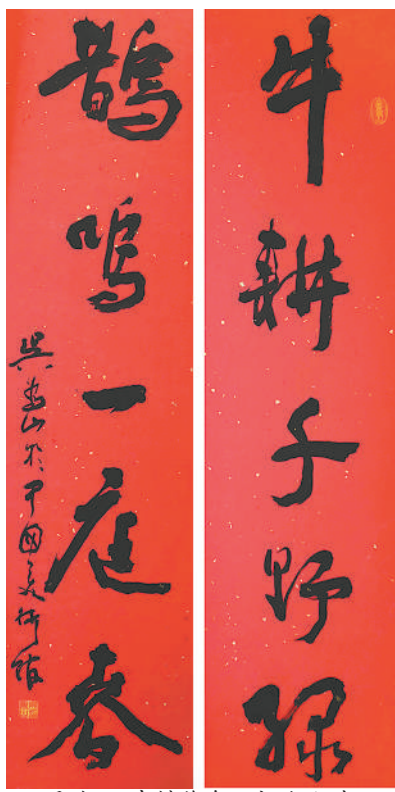 牛耕千野绿
鹊鸣一庭春
吴为山於中国美术馆